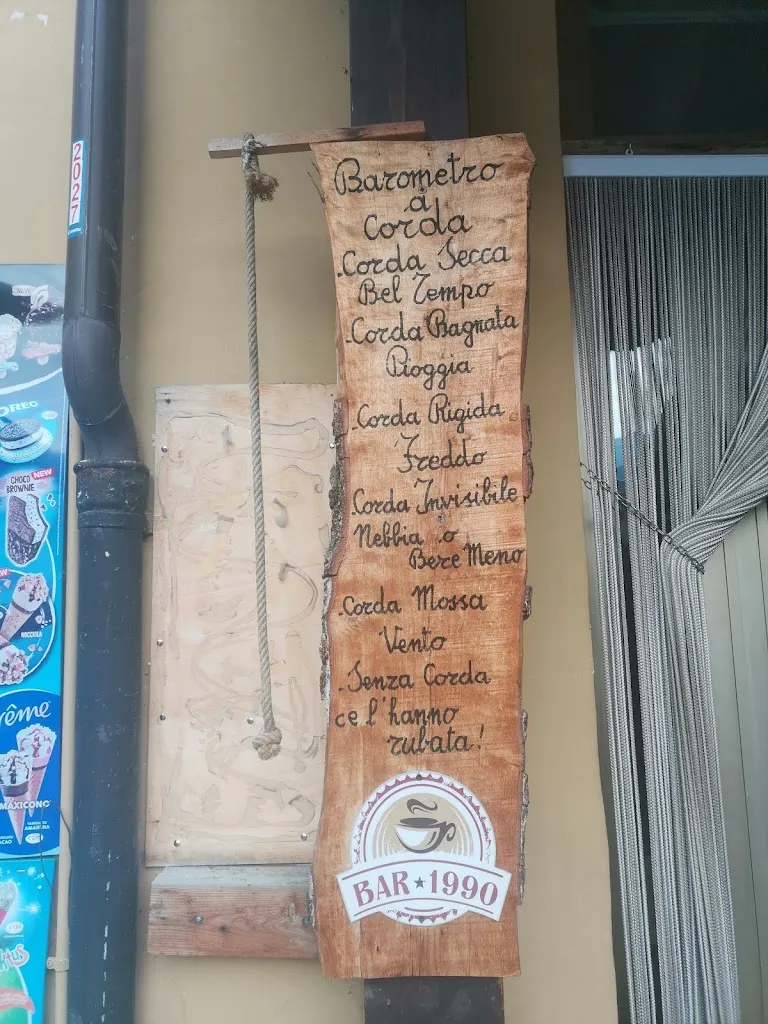 Barometro
a
Corda
.Corda Secca
Bel Tempo
.Corda Bagnata
Pioggia
.Corda Rigida
Freddo
.Corda Invisibile
Nebbia o
Bere Meno
.Corda Mossa
Vento
.Senza Corda
ce l'hanno
rubata!
BAR ★ 1990
2027
NEW
OREO
CHOCO NEW
BROWNIE
NOCCIOLA
rême
MAXICONO
AMARENA